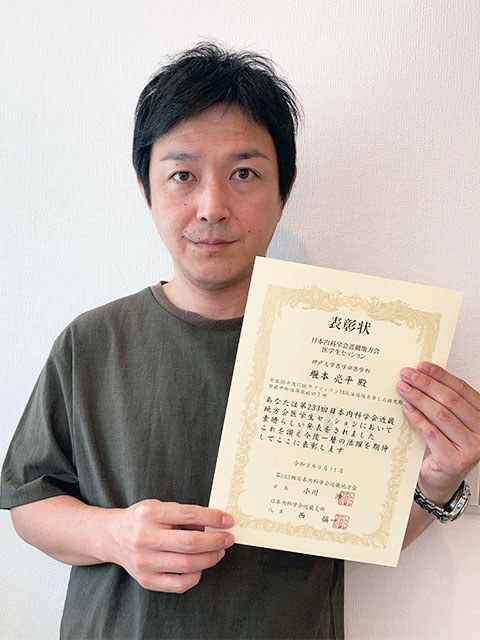 表彰状
日本内科学会近畿地方会
医学生セッション
神戸大学医学部医学科
堀本 亮平 殿
発症
あなたは第233回日本内科学会近畿
地方会医学生セッションにおいて
素晴らしい発表をされました
これを讃え今後一層の活躍を期待
してここに表彰します
令和3年9月11日
第233回日本内科学会近畿地方会
会長 小川
日本内科学会近畿支部
代表 西 愼一